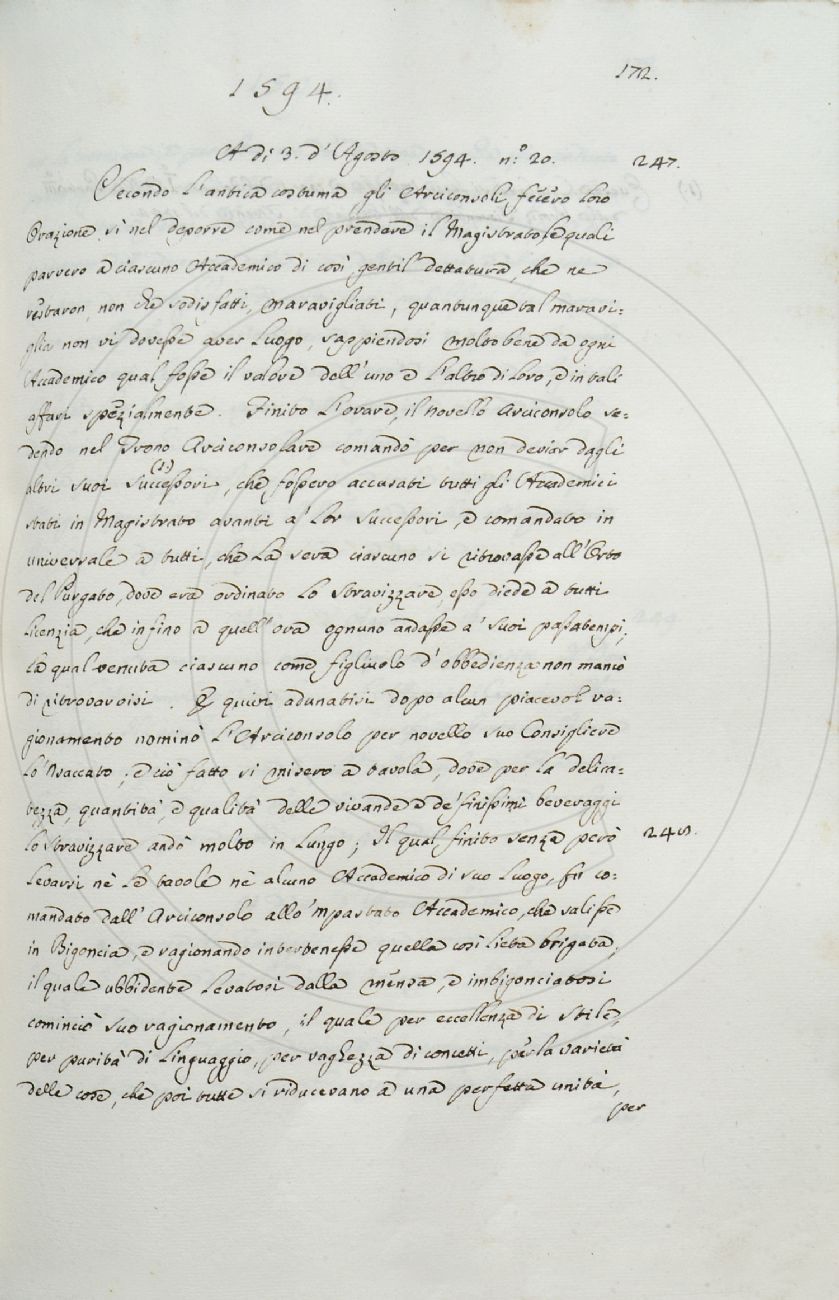 172.
1594.
A dì 3. d'Agosto 1594. n.° 20. 247.
Secondo l'antica costuma gli Arciconsoli fecero loro
Orazione sì nel deporre come nel prendere il Magistrato le quali
parvero a ciascuno Accademico di così gentil dettatura, che ne
restaron, non che sodisfatti, maravigliati, quantunque tal maravi=
glia non vi dovesse aver luogo, sappiendosi molto bene da ogni
Accademico qual fosse il valore dell'uno e l'altro di loro, e in tali
affari spezialmente. Finito l'orare, il novello Arciconsolo se=
dendo nel Trono Arciconsolare comandò per non deviar dagli
altri suoi successori (1), che fossero accusati tutti gli Accademici
stati in Magistrato avanti a' lor successori, e comandato in
universale a tutti, che la sera ciascuno si ritrovasse all'Orto
del Purgato, dove era ordinato lo stravizzare, esso diede a tutti
licenzia, che infino a quell'ora ognuno andasse a' suoi passatempi;
la qual venuta ciascuno come figliuolo d'obbedienza non mancò
di ritrovarvisi. E quivi adunatisi dopo alcun piacevol ra=
gionamento nominò l'Arciconsolo per novello suo Consigliere
lo 'Nsaccato; e ciò fatto si misero a tavola, dove per la delica=
tezza, quantità, e qualità delle vivande e de' finissimi beveraggi
lo stravizzare andò molto in lungo; Il qual finito senza però 248.
levarsi nè le tavole nè alcuno Accademico di suo luogo, fù co=
mandato dall'Arciconsolo allo 'mpastato Accademico, che salisse
in Bigoncia, e ragionando intertenesse quella così lieta brigata;
il quale ubbidente levatosi dalla mensa, e imbigonciatosi
cominciò suo ragionamento, il quale per eccellenza di stile,
per purità di linguaggio, per vaghezza di concetti, per la varietà
delle cose, che poi tutte si riducevano a una perfetta unità,
per